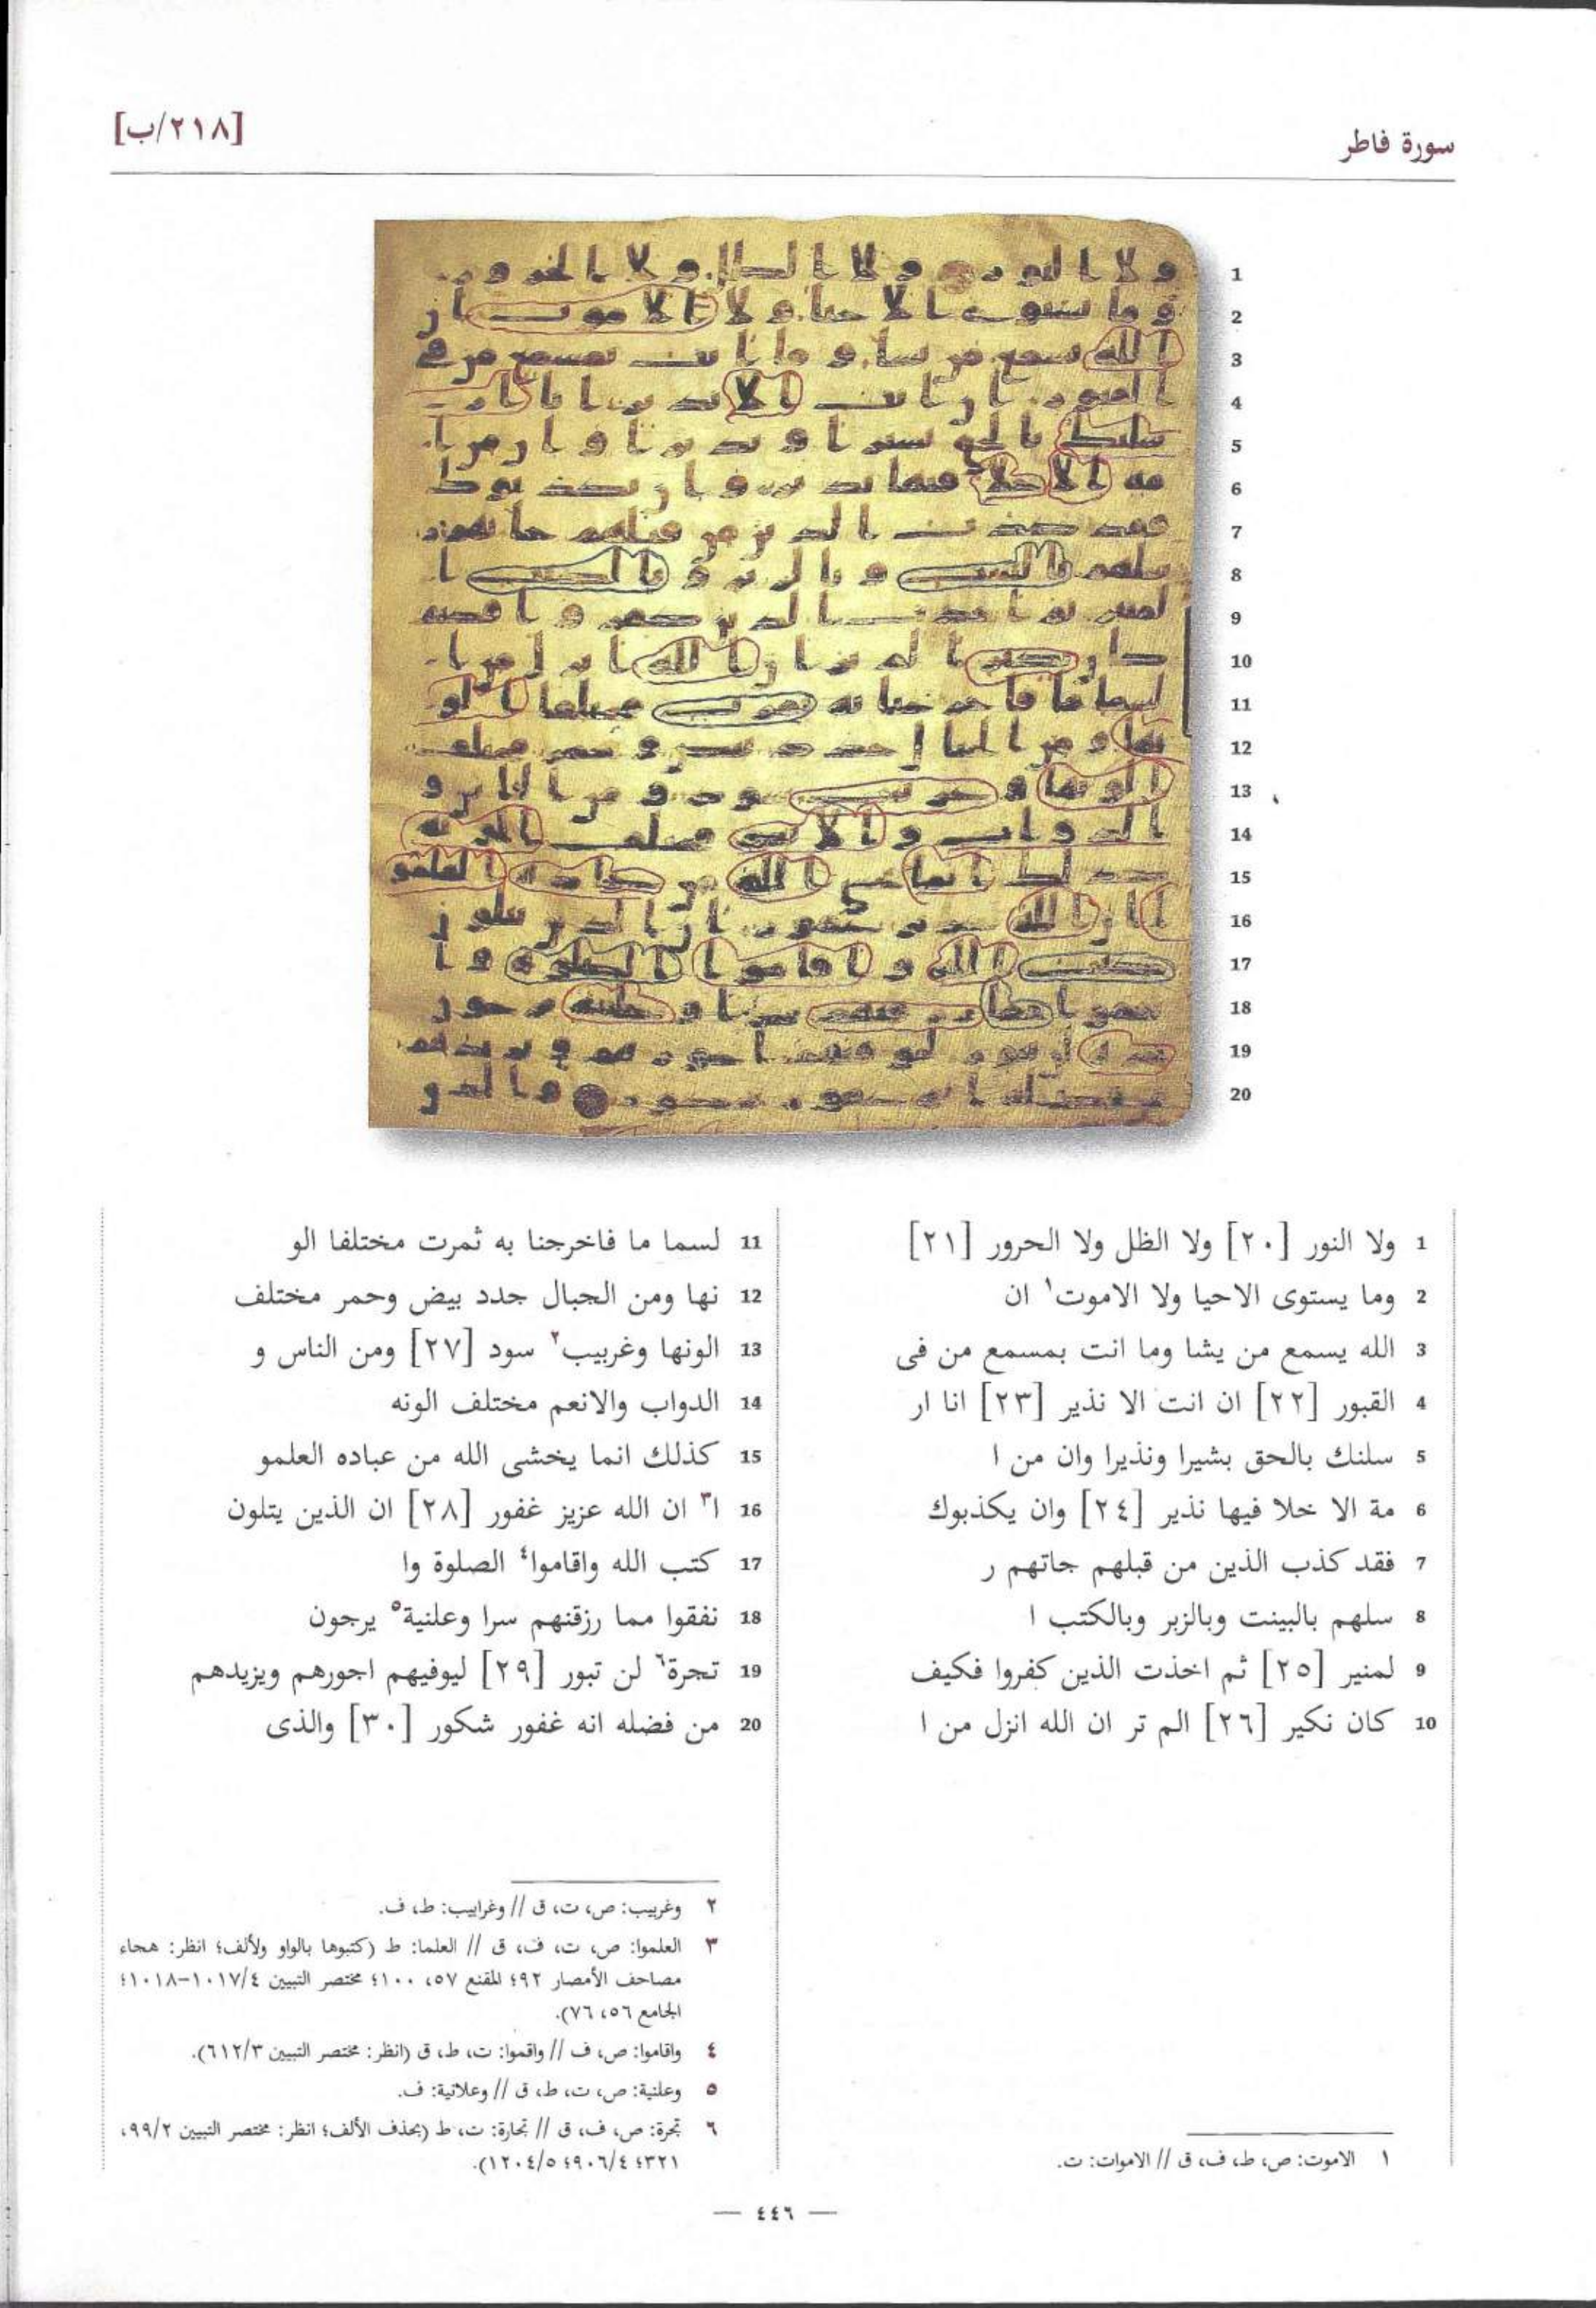 سورة فاطر
[٢١٨/ب]
1 ولا النور [٢٠] ولا الظل ولا الحرور [٢١]
2 وما يستوى الاحيا ولا الاموت١ ان
3 الله يسمع من يشا وما انت بمسمع من فى
4 القبور [٢٢] ان انت الا نذير [٢٣] انا ار
5 سلنك بالحق بشيرا ونذيرا وان من ا
6 مة الا خلا فيها نذير [٢٤] وان يكذبوك
7 فقد كذب الذين من قبلهم جاتهم ر
8 سلهم بالبينت وبالزبر وبالكتب ا
9 لمنير [٢٥] ثم اخذت الذين كفروا فكيف
10 كان نكير [٢٦] الم تر ان الله انزل من ا
11 لسما ما فاخرجنا به ثمرت مختلفا الو
12 نها ومن الجبال جدد بيض وحمر مختلف
13 الونها وغربيب٢ سود [٢٧] ومن الناس و
14 الدواب والانعم مختلف الونه
15 كذلك انما يخشى الله من عباده العلمو
16 ا٣ ان الله عزيز غفور [٢٨] ان الذين يتلون
17 كتب الله واقاموا٤ الصلوة وا
18 نفقوا مما رزقنهم سرا وعلنية٥ يرجون
19 تجرة٦ لن تبور [٢٩] ليوفيهم اجورهم ويزيدهم
20 من فضله انه غفور شكور [٣٠] والذى
١ الاموت: ص، ط، ف، ق // الاموات: ت.
٢ وغربيب: ص، ت، ق // وغرابيب: ط، ف.
٣ العلموا: ص، ت، ف، ق // العلما: ط (كتبوها بالواو ولألف؛ انظر: هجاء
مصاحف الأمصار ٩٢؛ المقنع ٥٧، ١٠٠؛ مختصر التبيين ١٠١٧/٤-١٠١٨؛
الجامع ٥٦، ٧٦).
٤ واقاموا: ص، ف // واقموا: ت، ط، ق (انظر: مختصر التبيين ٦١٢/٣).
٥ وعلنية: ص، ت، ط، ق // وعلانية: ف.
٦ تجرة: ص، ف، ق // تجارة: ت، ط (بحذف الألف؛ انظر: مختصر التبيين ٩٩/٢،
٣٢١؛ ٩٠٦/٤؛ ١٢٠٤/٥).
— ٤٤٦ —